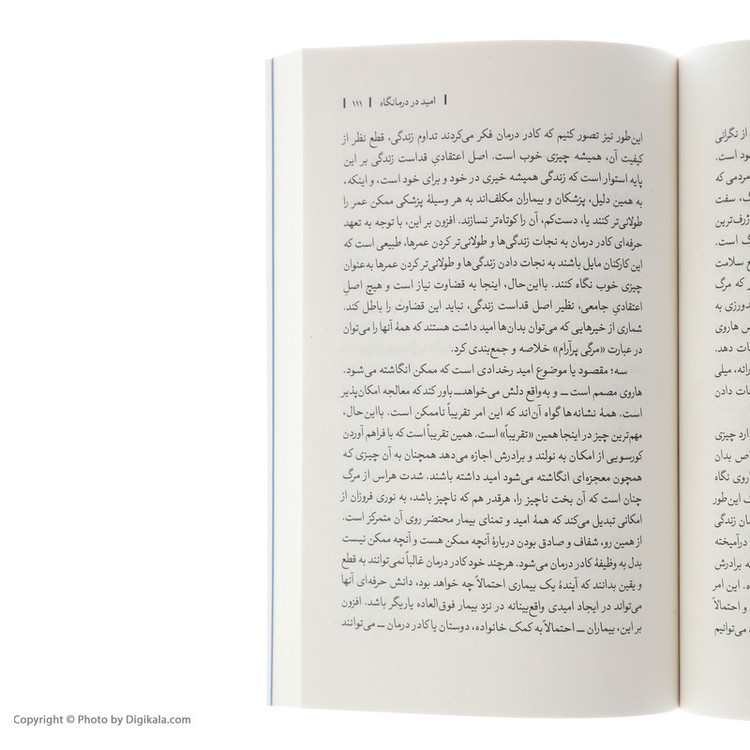 امید در درمانگاه | ۱۱۱
این‌طور نیز تصور کنیم که کادر درمان فکر می‌کردند تداوم زندگی، قطع نظر از
کیفیت آن، همیشه چیزی خوب است. اصل اعتقادیِ قداست زندگی بر این
پایه استوار است که زندگی همیشه خیری در خود و برای خود است، و اینکه،
به همین دلیل، پزشکان و بیماران مکلف‌اند به هر وسیلهٔ پزشکی ممکن عمر را
طولانی‌تر کنند یا، دست‌کم، آن را کوتاه‌تر نسازند. افزون بر این، با توجه به تعهد
حرفه‌ای کادر درمان به نجات زندگی‌ها و طولانی‌تر کردن عمرها، طبیعی است که
این کارکنان مایل باشند به نجات دادن زندگی‌ها و طولانی‌تر کردن عمرها به‌عنوان
چیزی خوب نگاه کنند. بااین‌حال، اینجا به قضاوت نیاز است و هیچ اصلِ
اعتقادیِ جامعی، نظیر اصل قداست زندگی، نباید این قضاوت را باطل کند.
شماری از خیرهایی که می‌توان بدان‌ها امید داشت هستند که همهٔ آنها را می‌توان
در عبارت «مرگی پرآرام» خلاصه و جمع‌بندی کرد.
سه؛ مقصود یا موضوع امید رخدادی است که ممکن انگاشته می‌شود.
هاروی مصمم است ــ و به‌واقع دلش می‌خواهدــ باور کند که معالجه امکان‌پذیر
است. همهٔ نشانه‌ها گواه آن‌اند که این امر تقریباً ناممکن است. بااین‌حال،
مهم‌ترین چیز در اینجا همین «تقریباً» است. همین تقریباً است که با فراهم آوردن
کورسویی از امکان به نولند و برادرش اجازه می‌دهد همچنان به آن چیزی که
همچون معجزه‌ای انگاشته می‌شود امید داشته باشند. شدت هراس از مرگ
چنان است که آن بخت ناچیز را، هرقدر هم که ناچیز باشد، به نوری فروزان از
امکانی تبدیل می‌کند که همهٔ امید و تمنای بیمار محتضر روی آن متمرکز است.
از همین رو، شفاف و صادق بودن دربارهٔ آنچه ممکن هست و آنچه ممکن نیست
بدل به وظیفهٔ کادر درمان می‌شود. هرچند خود کادر درمان غالباً نمی‌توانند به قطع
و یقین بدانند که آیندهٔ یک بیماری احتمالاً چه خواهد بود، دانش حرفه‌ای آنها
می‌تواند در ایجاد امیدی واقع‌بینانه در نزد بیمار فوق‌العاده یاریگر باشد. افزون
بر این، بیماران ــ احتمالاً به کمک خانواده، دوستان یا کادر درمان ــ می‌توانند
از نگرانی
ود است.
مردمی که
گ، سفت
ژرف‌ترین
گ است.
ع سلامت
ر که مرگ
دورزی به
س هاروی
ات دهد.
رانه، میلی
ات دادن
دارد چیزی
اص بدان
اروی نگاه
ک این‌طور
ان زندگی
درآمیخته
ه برادرش
ه. این امر
و احتمالاً
می‌توانیم
Copyright © Photo by Digikala.com